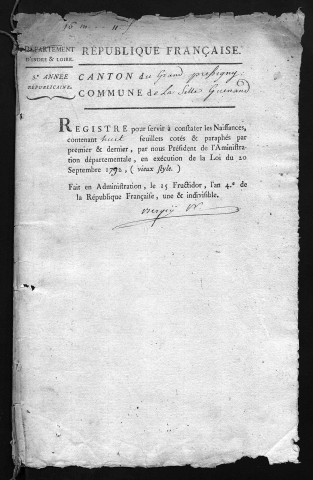 DÉPARTEMENT
D'INDRE & LOIRE.
RÉPUBLIQUE FRANÇAISE.
5.e ANNÉE
RÉPUBLICAINE.
CANTON du Grand pressigny.
COMMUNE de la Selle Guenand
REGISTRE pour servir à constater les Naissances,
contenant huit feuillets cotés & paraphés par
premier & dernier, par nous Président de l'Aministration
départementale, en exécution de la Loi du 20
Septembre 1792, (vieux style.)
Fait en Administration, le 15 Fructidor, l'an 4.e de
la République Française, une & indivisible.